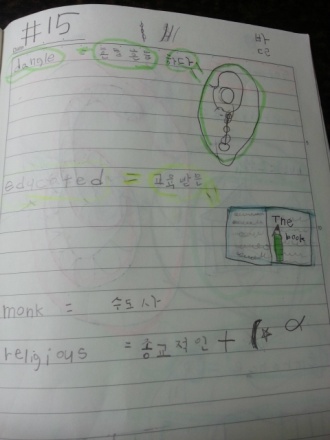 #15
dangle = 흔들흔들 하다
educated = 교육받은
The
book
monk = 수도사
religious = 종교적인 +